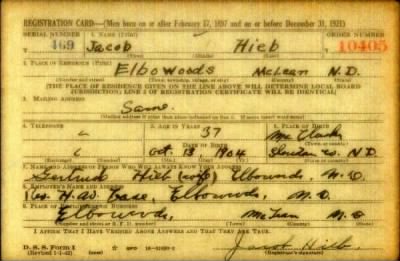 REGISTRATION CARD—(Men born on or after February 17, 1897 and on or before December 31, 1921)
SERIAL NUMBER 1. NAME (Print) ORDER NUMBER
469 Jacob Hieb 10405
(First) (Middle) (Last)
2. PLACE OF RESIDENCE (Print)
Elbowoods McLean N.D.
(Number and street) (Town, township, village, or city) (County) (State)
[THE PLACE OF RESIDENCE GIVEN ON THE LINE ABOVE WILL DETERMINE LOCAL BOARD
JURISDICTION; LINE 2 OF REGISTRATION CERTIFICATE WILL BE IDENTICAL]
3. MAILING ADDRESS
Same.
4. TELEPHONE 5. AGE IN YEARS 6. PLACE OF BIRTH
37 Mc Clusky
DATE OF BIRTH
Oct. 18 1904 Sheridan Co. N D
7. NAME AND ADDRESS OF PERSON WHO WILL ALWAYS KNOW YOUR ADDRESS
Gertrude Hieb (wife) Elbowoods, N. D.
8. EMPLOYER'S NAME AND ADDRESS
H. W. Case, Elbowoods, N. D.
9. PLACE OF EMPLOYMENT OR BUSINESS
Elbowoods, McLean N D
(Number and street or R. F. D. number) (Town) (County) (State)
I AFFIRM THAT I HAVE VERIFIED ABOVE ANSWERS AND THAT THEY ARE TRUE.
D. S. S. Form 1
(Revised 1-1-42) GPO 16-21630-2
Jacob Hieb
(Registrant's signature)